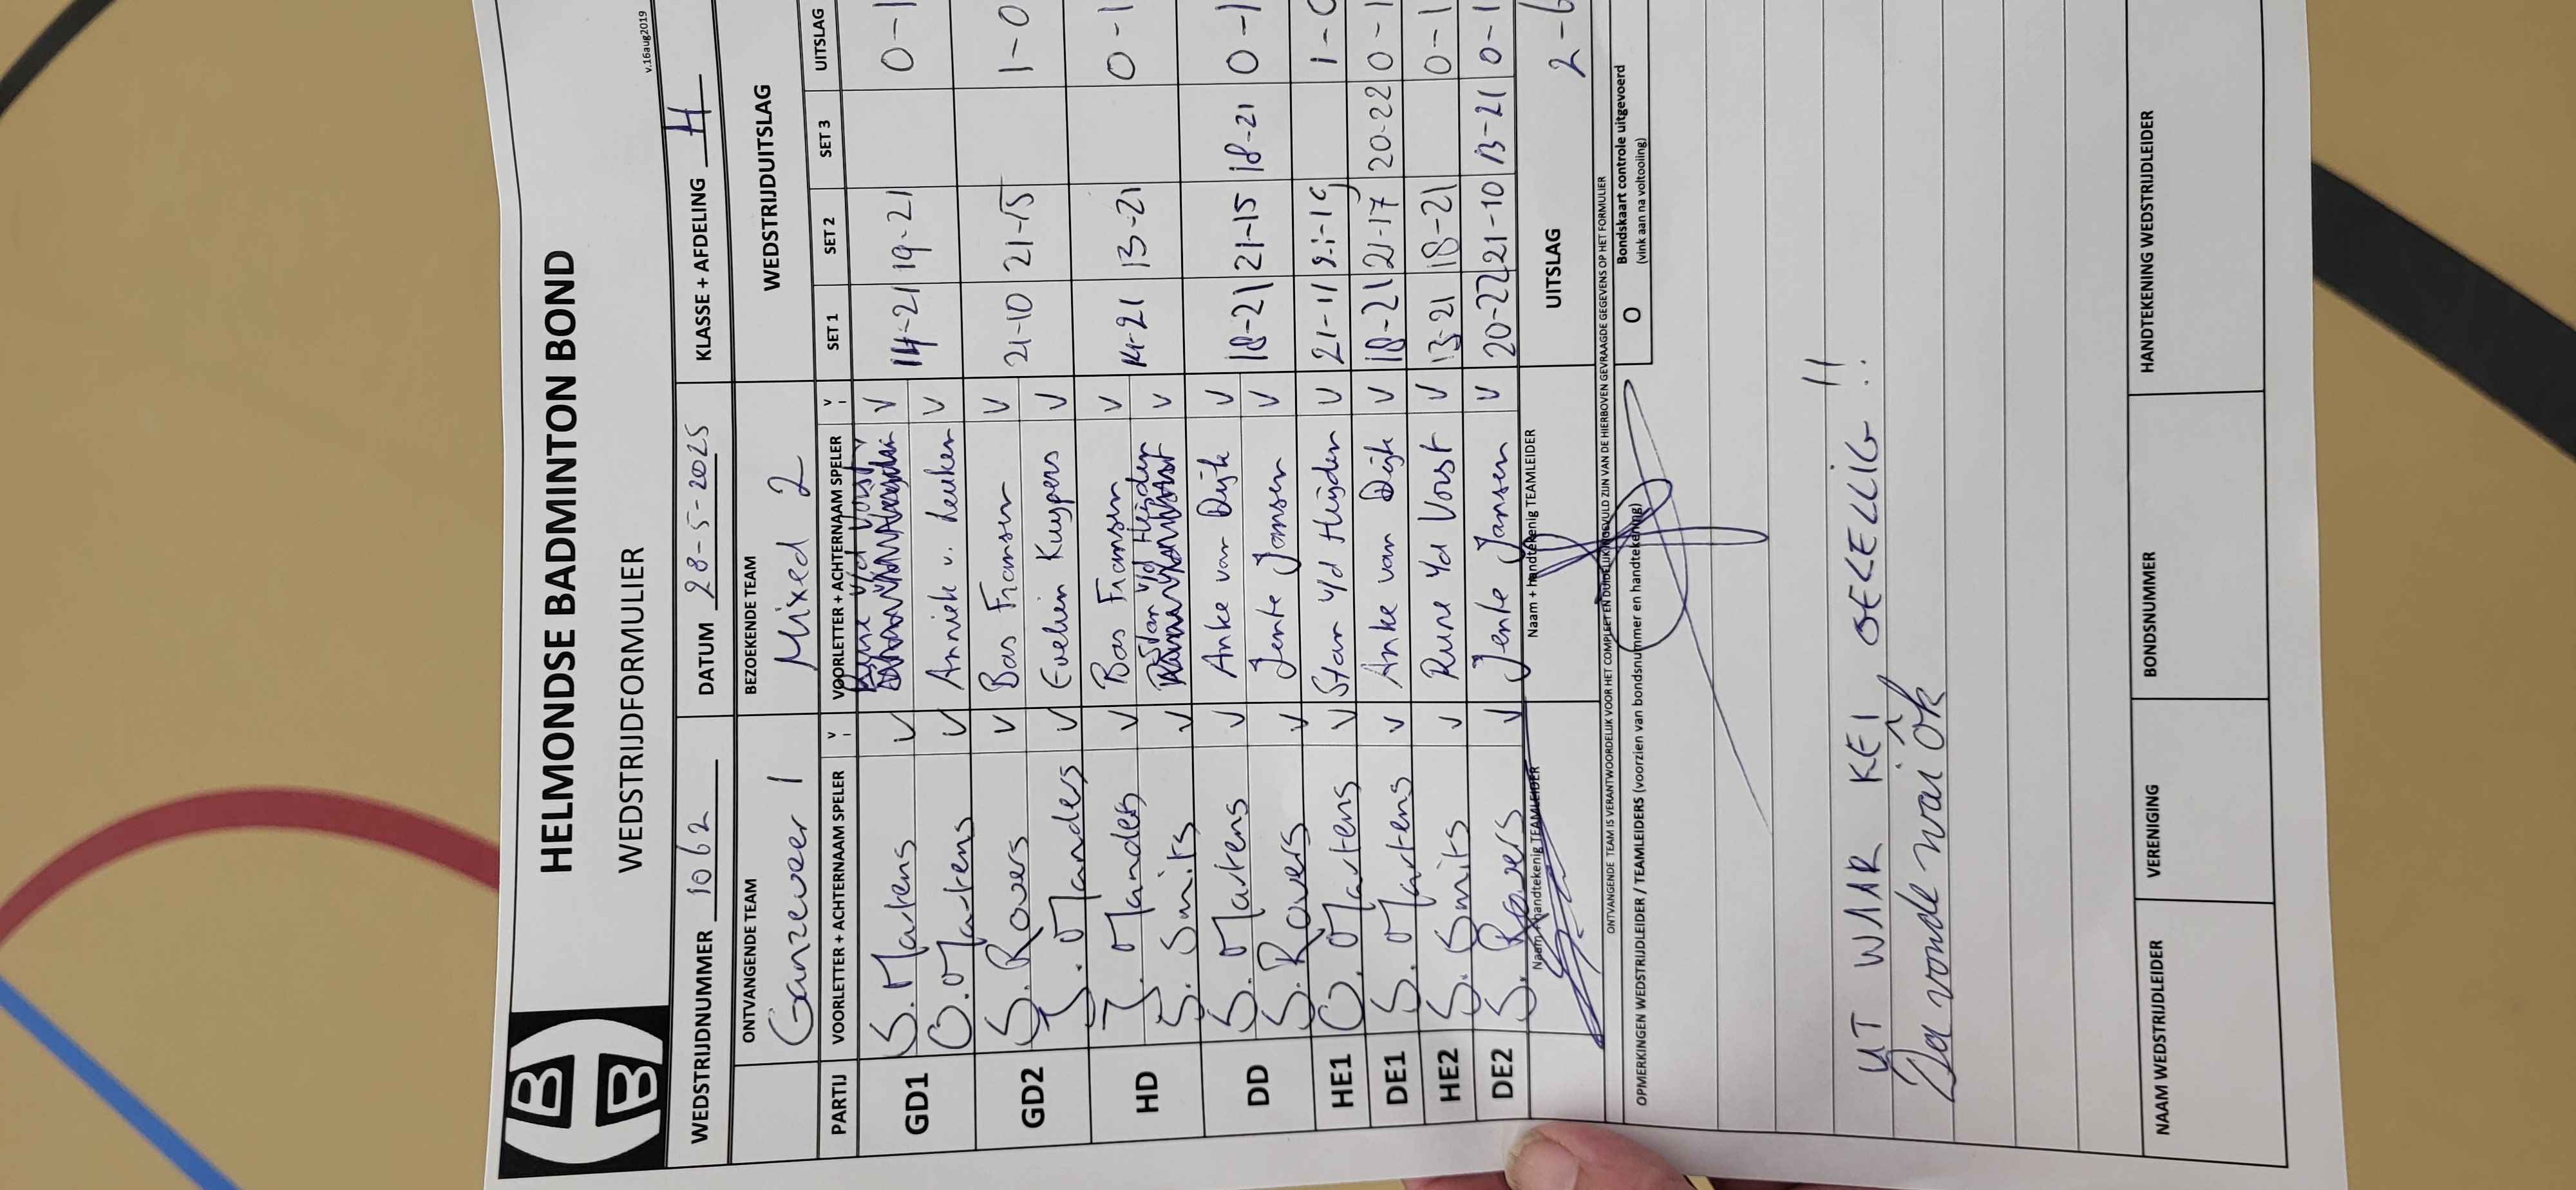 HELMONDSE BADMINTON BOND
WEDSTRIJDFORMULIER
v.16aug2019
WEDSTRIJDNUMMER 1062 DATUM 28-5-2025 KLASSE + AFDELING H
ONTVANGENDE TEAM BEZOEKENDE TEAM WEDSTRIJDUITSLAG
Ganzeveer 1 Mixed 2
PARTIJ VOORLETTER + ACHTERNAAM SPELER V VOORLETTER + ACHTERNAAM SPELER V SET 1 SET 2 SET 3 UITSLAG
GD1 S. Martens V Rune v/d Vorst V 14-21 19-21 0-1
O. Martens V Anniek v. Leuken V
GD2 S. Rovers V Bas Fransen V 21-10 21-15 1-0
J. Manders V Evelien Kuypers V
HD J. Manders V Bas Fransen V 14-21 13-21 0-1
S. Smits V Stan v/d Heijden V
DD S. Martens V Anke van Dijk V 18-21 21-15 18-21 0-1
S. Rovers V Jente Jansen V
HE1 O. Martens V Stan v/d Heijden V 21-11 1-0
DE1 S. Martens V Anke van Dijk V 18-21 21-17 20-22 0-1
HE2 S. Smits V Rune v/d Vorst V 13-21 18-21 0-1
DE2 S. Rovers V Jente Jansen V 20-22 21-10 13-21 0-1
Naam + handtekenig TEAMLEIDER Naam + handtekenig TEAMLEIDER UITSLAG 2-6
ONTVANGENDE TEAM IS VERANTWOORDELIJK VOOR HET COMPLEET EN DUIDELIJK INGEVULD ZIJN VAN DE HIERBOVEN GEVRAAGDE GEGEVENS OP HET FORMULIER
OPMERKINGEN WEDSTRIJDLEIDER / TEAMLEIDERS (voorzien van bondsnummer en handtekening) O Bondskaart controle uitgevoerd
(vink aan na voltooiing)
UT WAR KEI GEZELLIG !!
Da vonde wai ôk
NAAM WEDSTRIJDLEIDER VERENIGING BONDSNUMMER HANDTEKENING WEDSTRIJDLEIDER